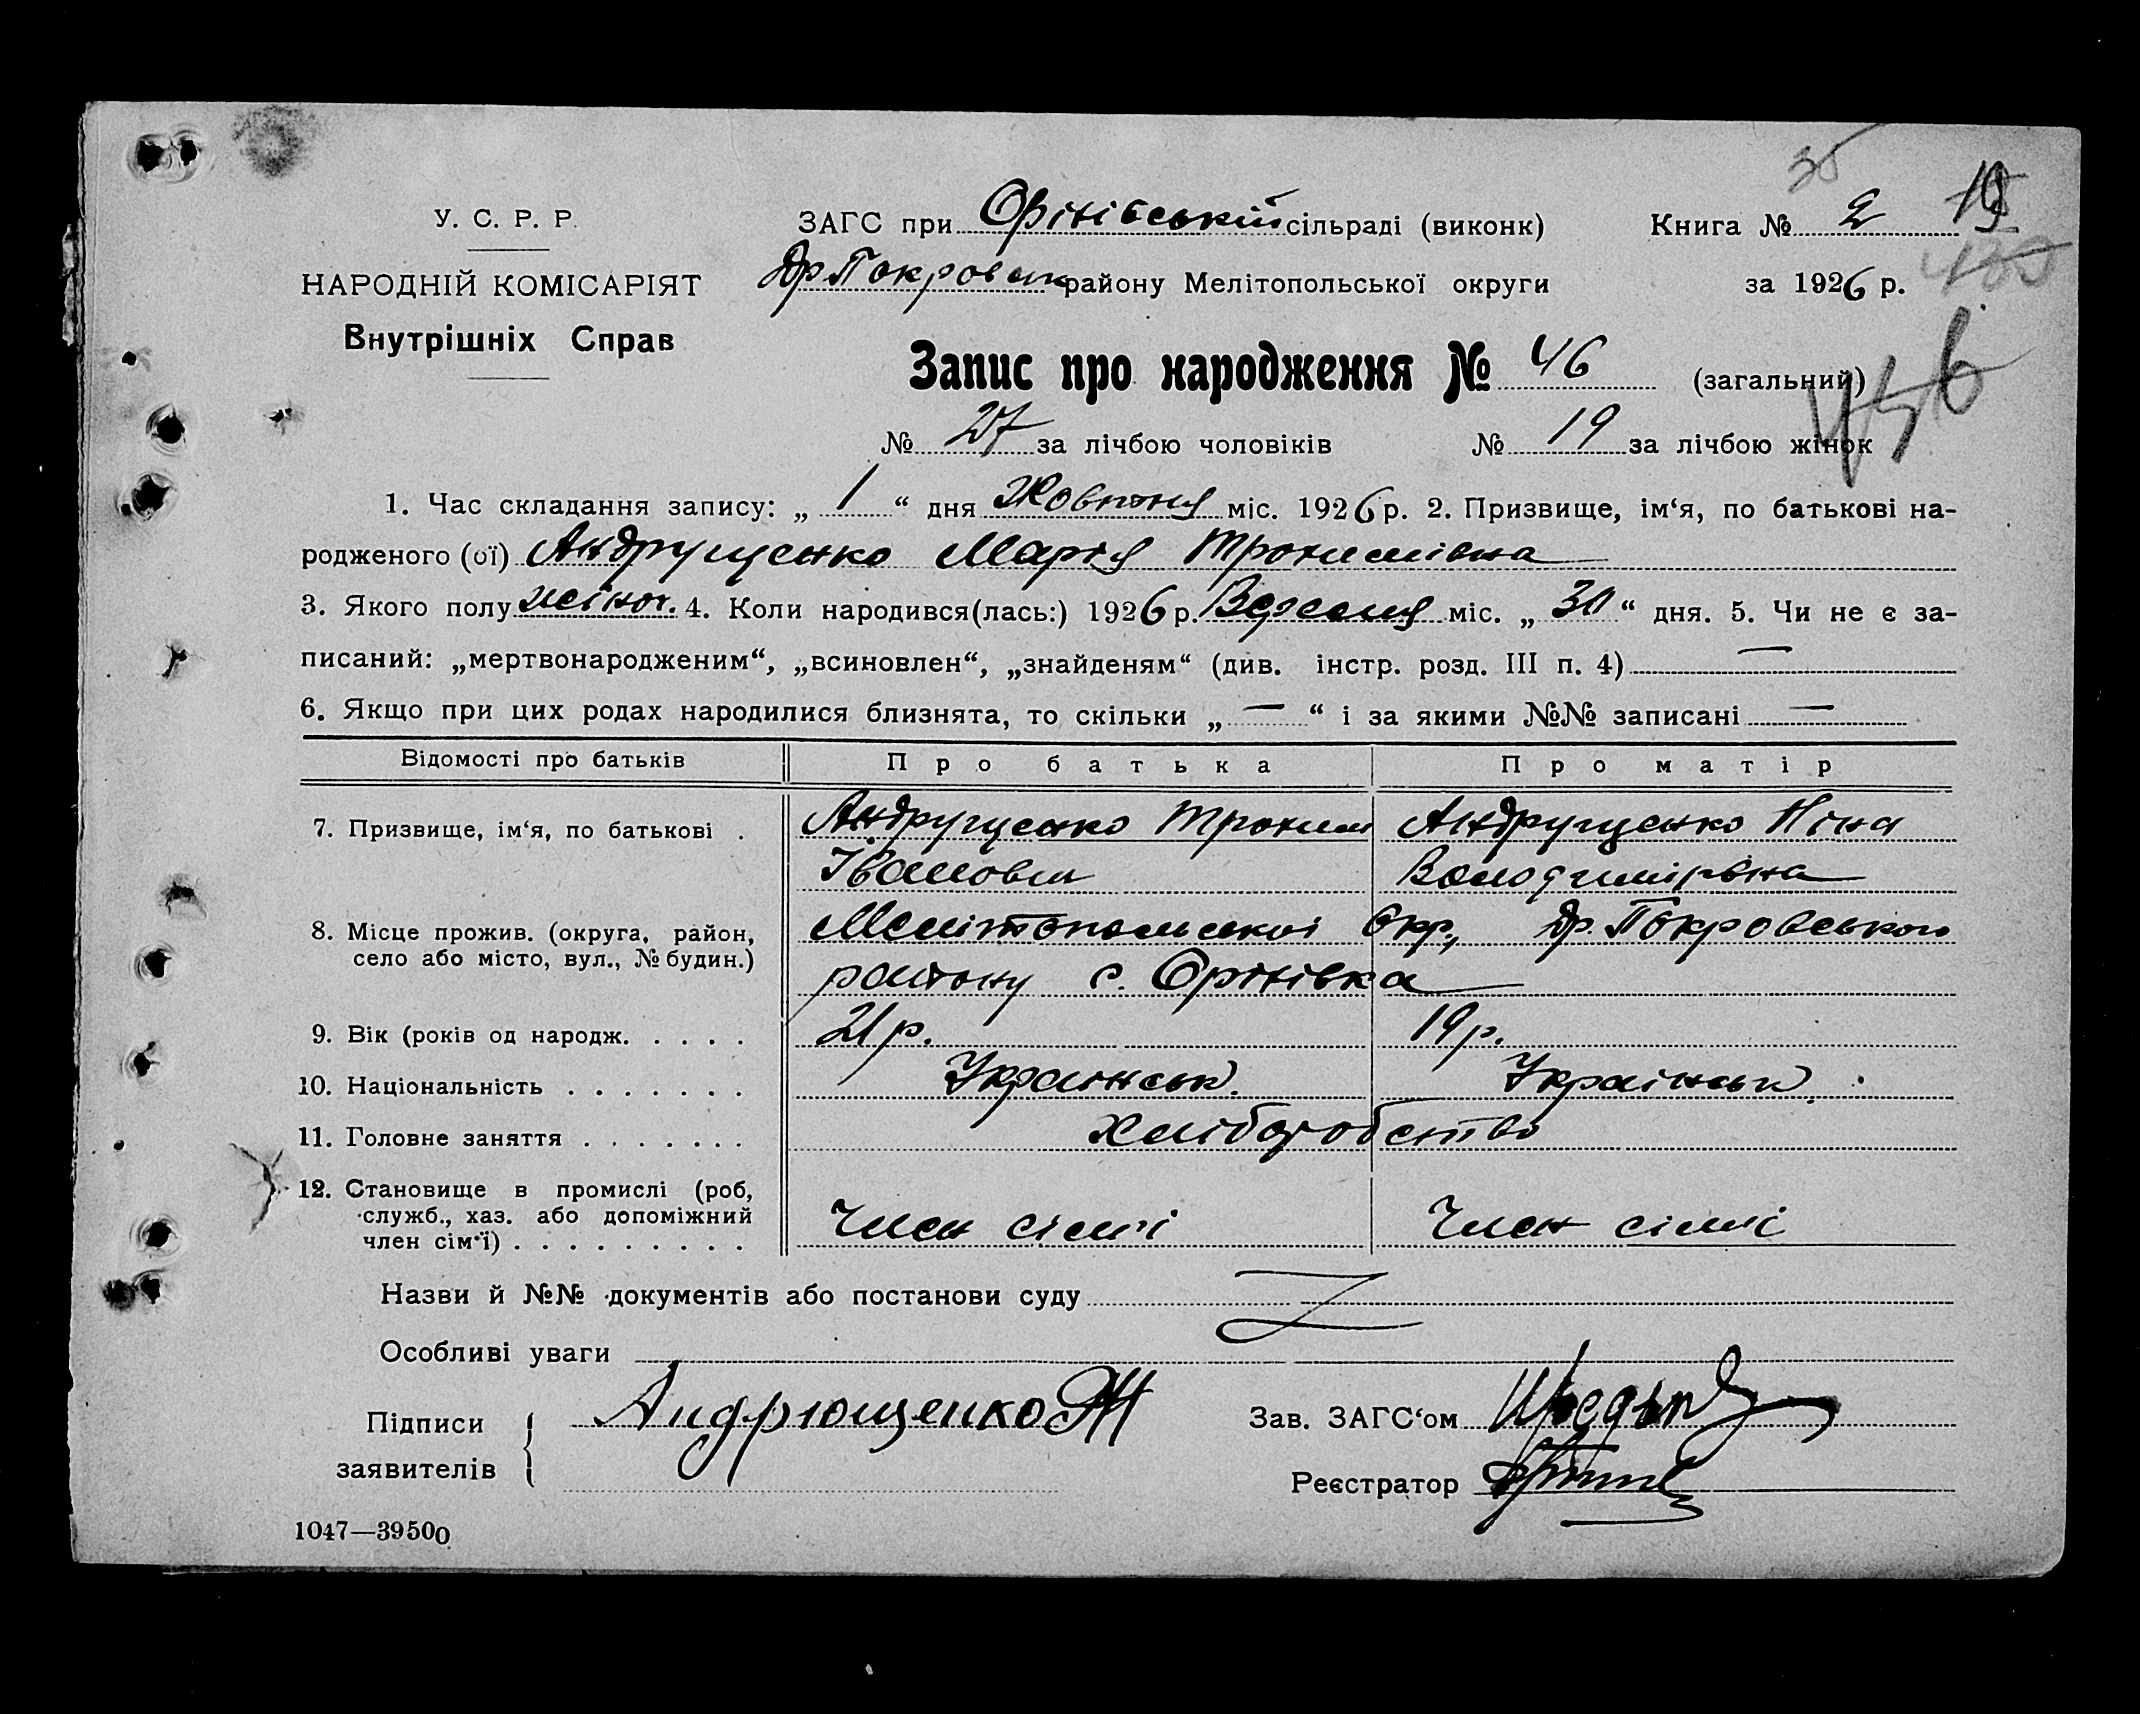 35
У. С. Р. Р. ЗАГС при Орінівській сільраді (виконк) Книга № 2
НАРОДНІЙ КОМІСАРІЯТ Др Покровськ району Мелітопольської округи за 1926 р.
Внутрішніх Справ
Запис про народження № 46 (загальний)
456
№ 27 за лічбою чоловіків № 19 за лічбою жінок
1. Час складання запису: „ 1 “ дня Жовтня міс. 1926 р. 2. Призвище, ім‘я, по батькові на-
родженого (ої) Андрущенко Марія Трохимівна
3. Якого полу жіноч. 4. Коли народився(лась:) 1926 р. Вересня міс. „ 30 “ дня. 5. Чи не є за-
писаний: „мертвонародженим“, „всиновлен“, „знайденям“ (див. інстр. розд. III п. 4) —
6. Якщо при цих родах народилися близнята, то скільки „ — “ і за якими №№ записані —
Відомості про батьків Про батька Про матір
7. Призвище, ім‘я, по батькові . Андрущенко Трохим Андрущенко Ніна
Іванович Володимирівна
8. Місце прожив. (округа, район, Мелітопольської Окр., Др. Покровського
село або місто, вул., № будин.) району с. Орінівка
9. Вік (років од народж. . . . . 21 р. 19 р.
10. Національність . . . . . . . Українськ. Українськ.
11. Головне заняття . . . . . . . Хліборобство
12. Становище в промислі (роб,
служб., хаз. або допоміжний Член сім'ї Член сім'ї
член сім‘ї) . . . . . . . . .
Назви й №№ документів або постанови суду
Особливі уваги
Підписи Андрющенко Зав. ЗАГС‘ом
заявителів Реєстратор
1047—39500